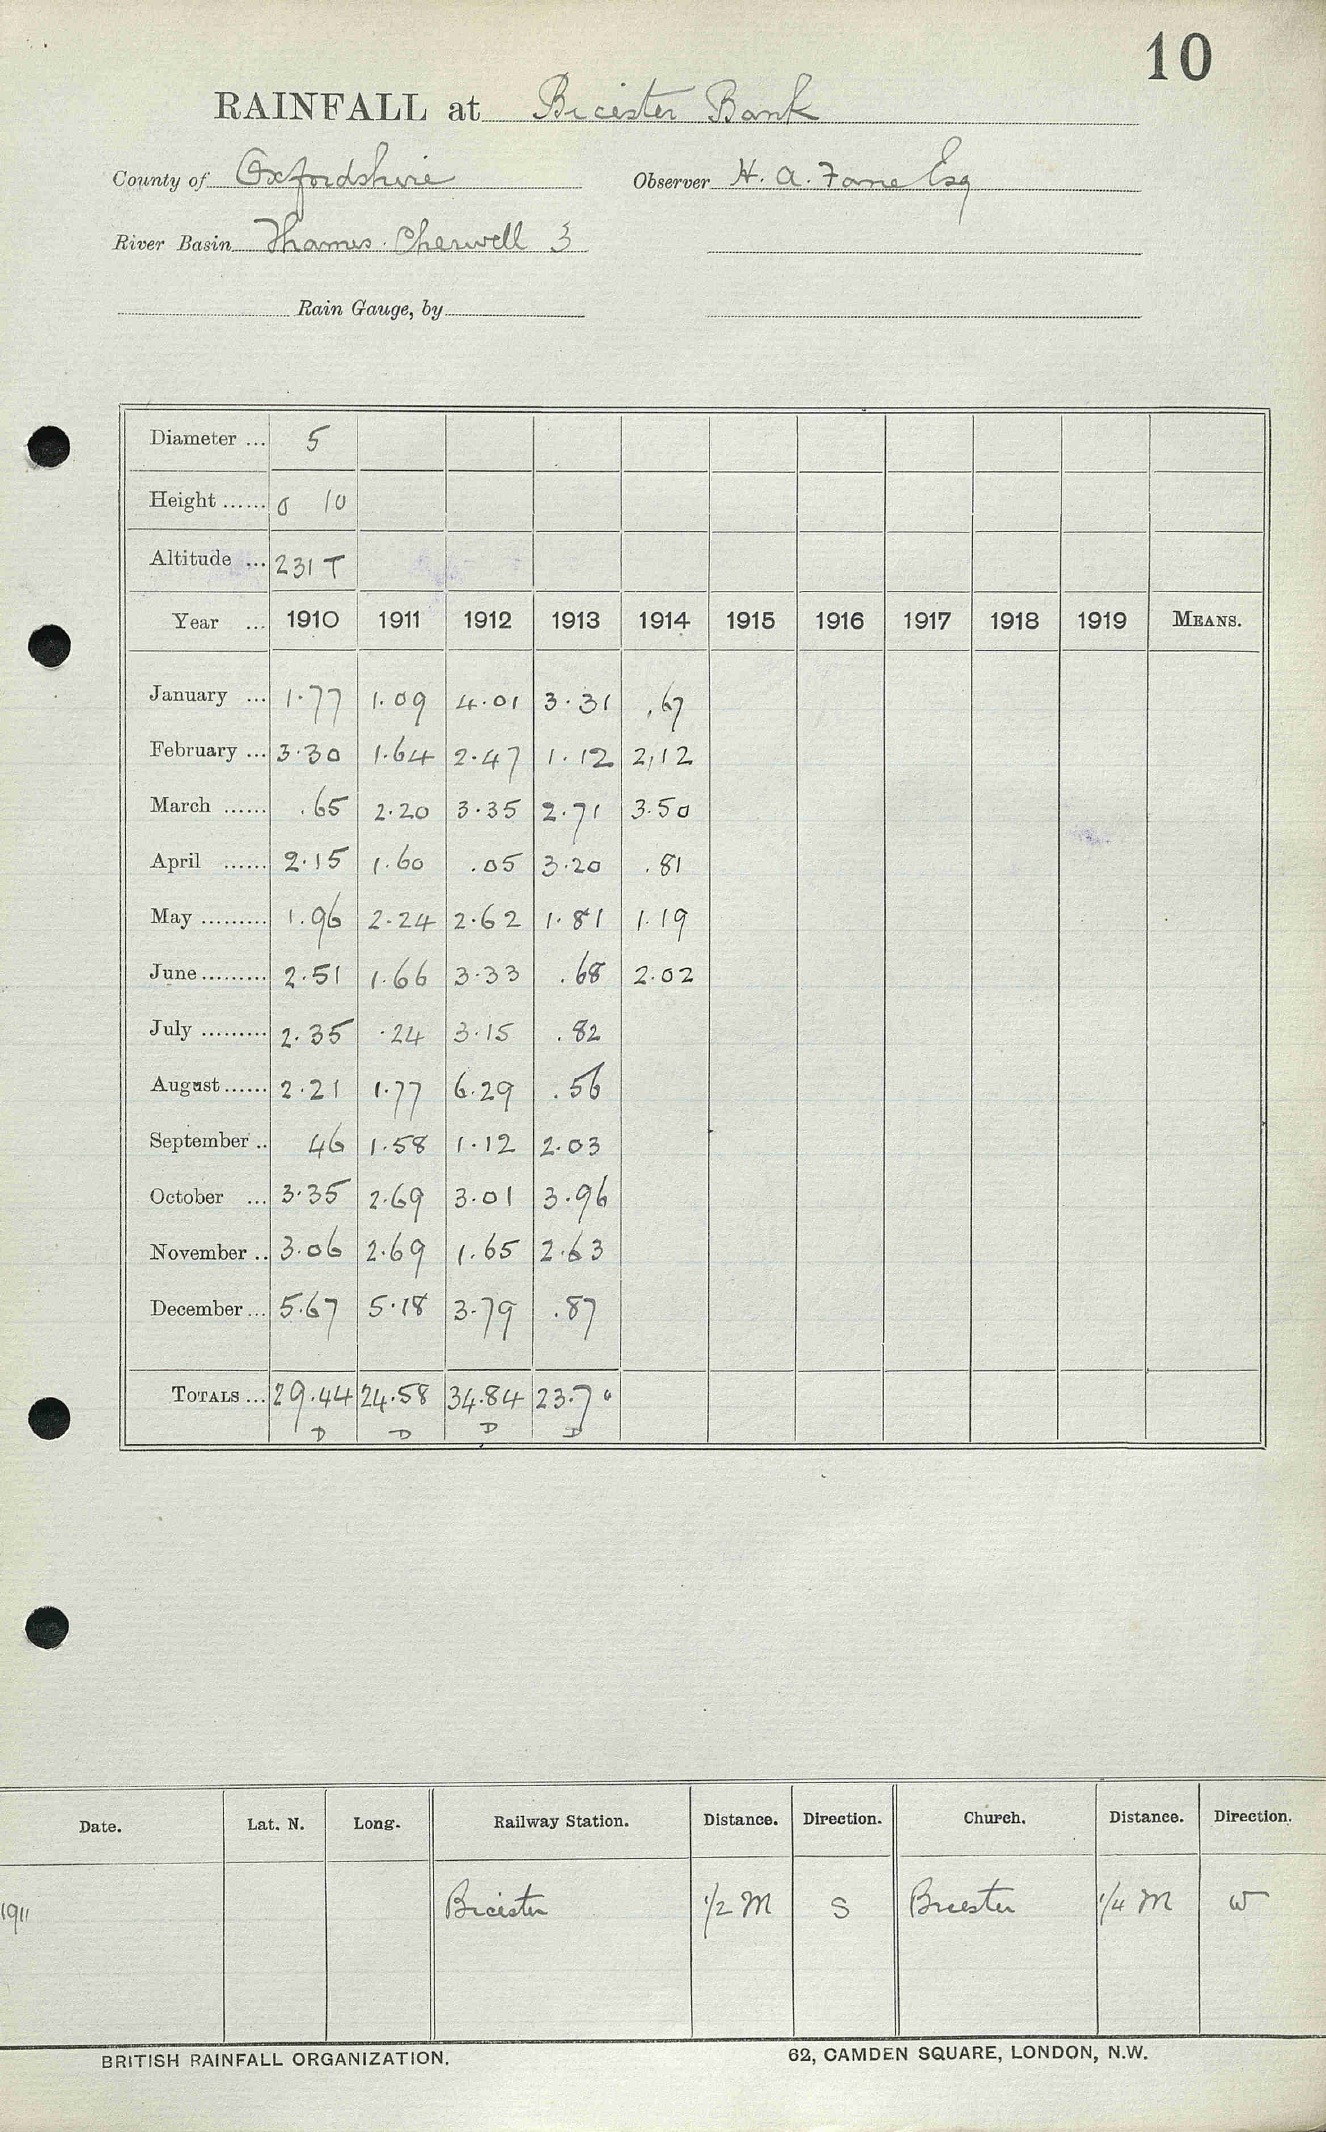 10
RAINFALL at Bicester Bank
County of Oxfordshire Observer H. A. Fane Esq
River Basin Thames. Cherwell 3
Rain Gauge, by
Diameter ... 5
Height ...... 0 10
Altitude ... 231 T
Year ... 1910 1911 1912 1913 1914 1915 1916 1917 1918 1919 MEANS.
January ... 1.77 1.09 4.01 3.31 .67
February ... 3.30 1.64 2.47 1.12 2.12
March ...... .65 2.20 3.35 2.71 3.50
April ...... 2.15 1.60 .05 3.20 .81
May ......... 1.96 2.24 2.62 1.81 1.19
June ......... 2.51 1.66 3.33 .68 2.02
July ......... 2.35 .24 3.15 .82
August ...... 2.21 1.77 6.29 .56
September .. 46 1.58 1.12 2.03
October ... 3.35 2.69 3.01 3.96
November .. 3.06 2.69 1.65 2.63
December ... 5.67 5.18 3.79 .87
TOTALS ... 29.44 24.58 34.84 23.70
D D D D
Date. Lat. N. Long. Railway Station. Distance. Direction. Church. Distance. Direction.
1911 Bicester 1/2 M S Bicester 1/4 M W
BRITISH RAINFALL ORGANIZATION. 62, CAMDEN SQUARE, LONDON, N.W.